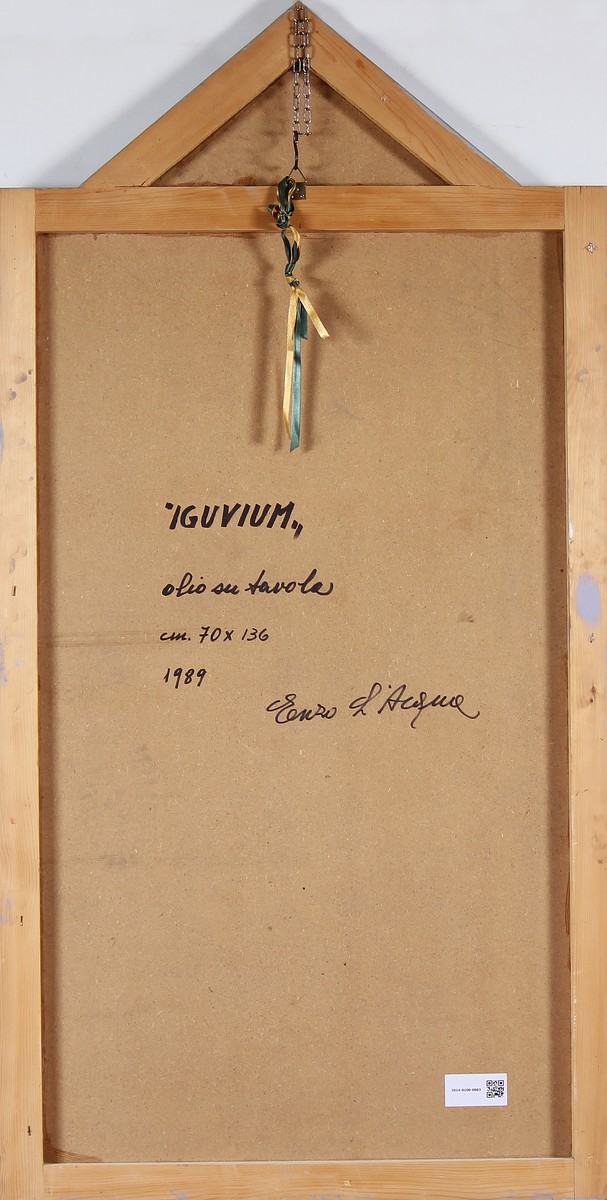 "IGUVIUM"
olio su tavola
cm. 70 x 136
1989
Enzo d'Acqua